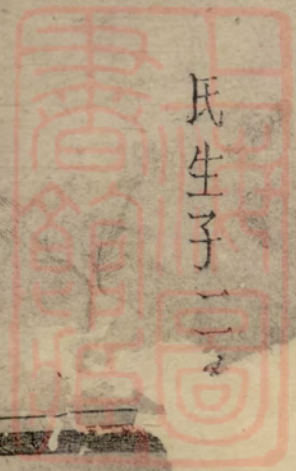 氏生子二
上海圖
書館藏